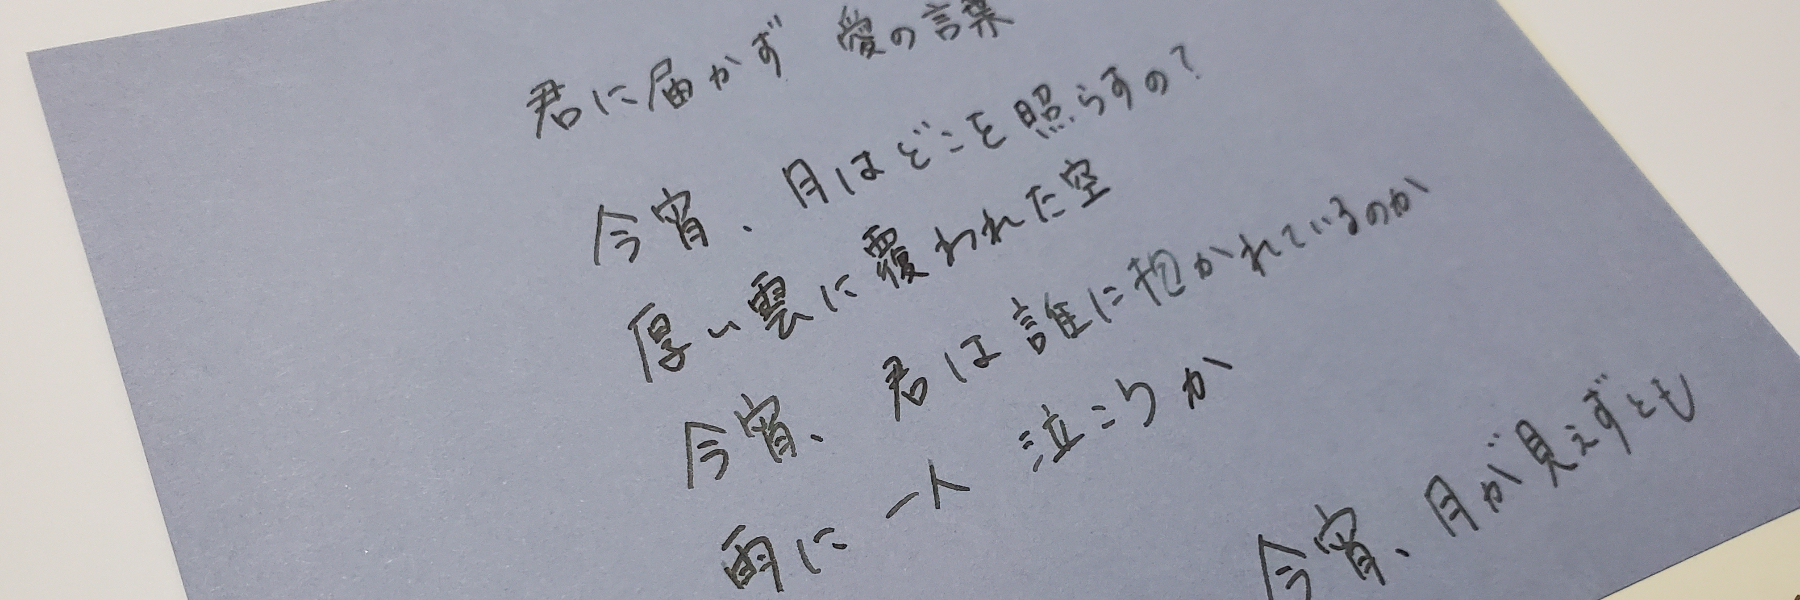 君に届かず 愛の言葉
今宵、月はどこを照らすの？
厚い雲に覆われた空
今宵、君は誰に抱かれているのか
雨に一人 泣こうか
今宵、月が見えずとも